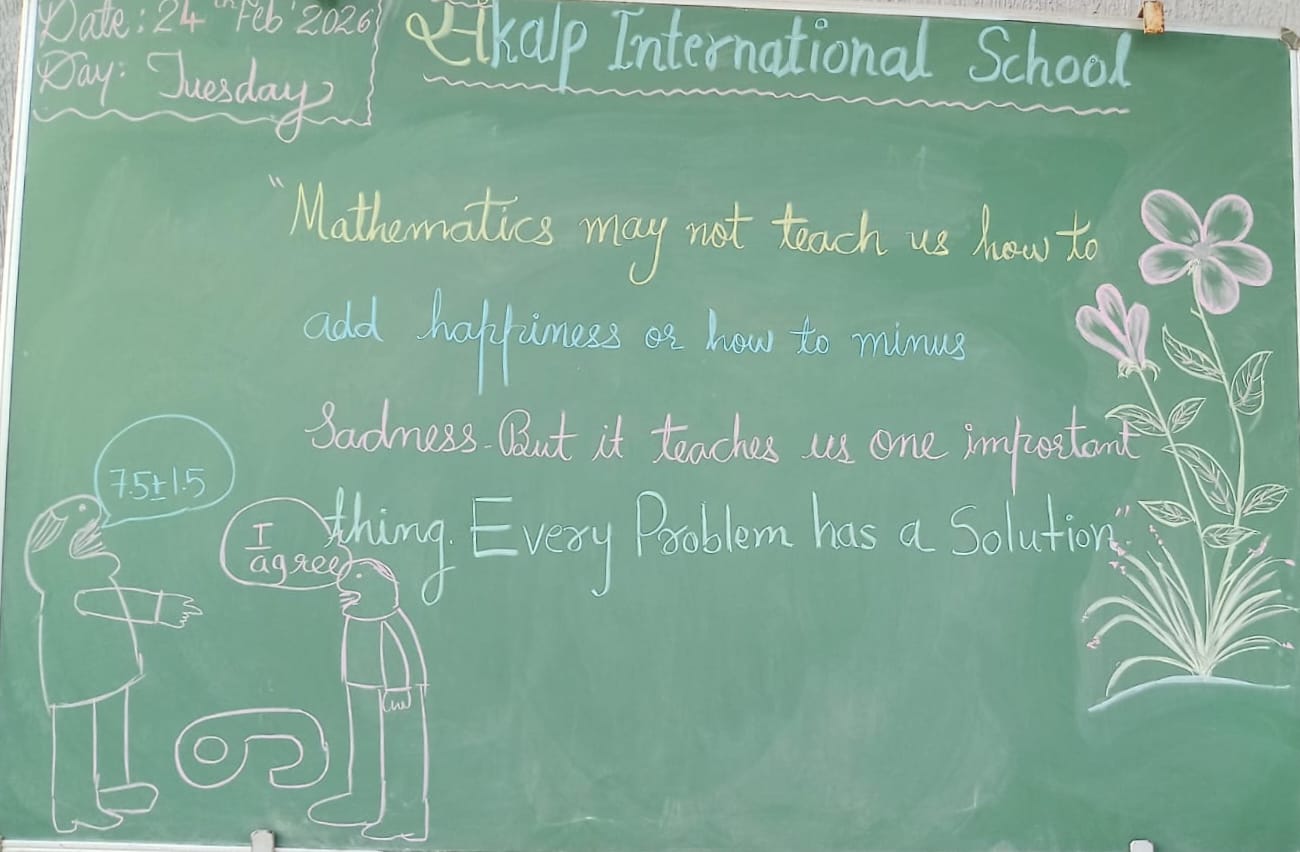 Date: 24th Feb' 2026
Day: Tuesday
संkalp International School
"Mathematics may not teach us how to
add happiness or how to minus
Sadness. But it teaches us one important
thing. Every Problem has a Solution."
7.5±1.5
I
agree